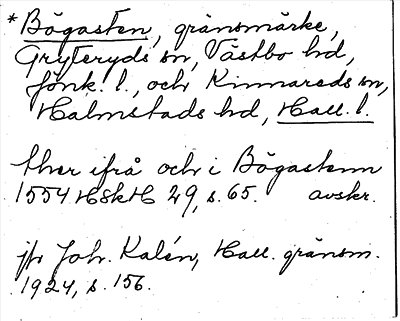 * Bögasten, gränsmärke,
Gryteryds sn, Västbo hd,
Jönk. l., och Kinnareds sn,
Halmstads hd, Hall. l.
ther ifrå och i Bögastenn
1554 HSkH 29, s. 65. avskr.
jfr Joh. Kalén, Hall. gränsm.
1924, s. 156.